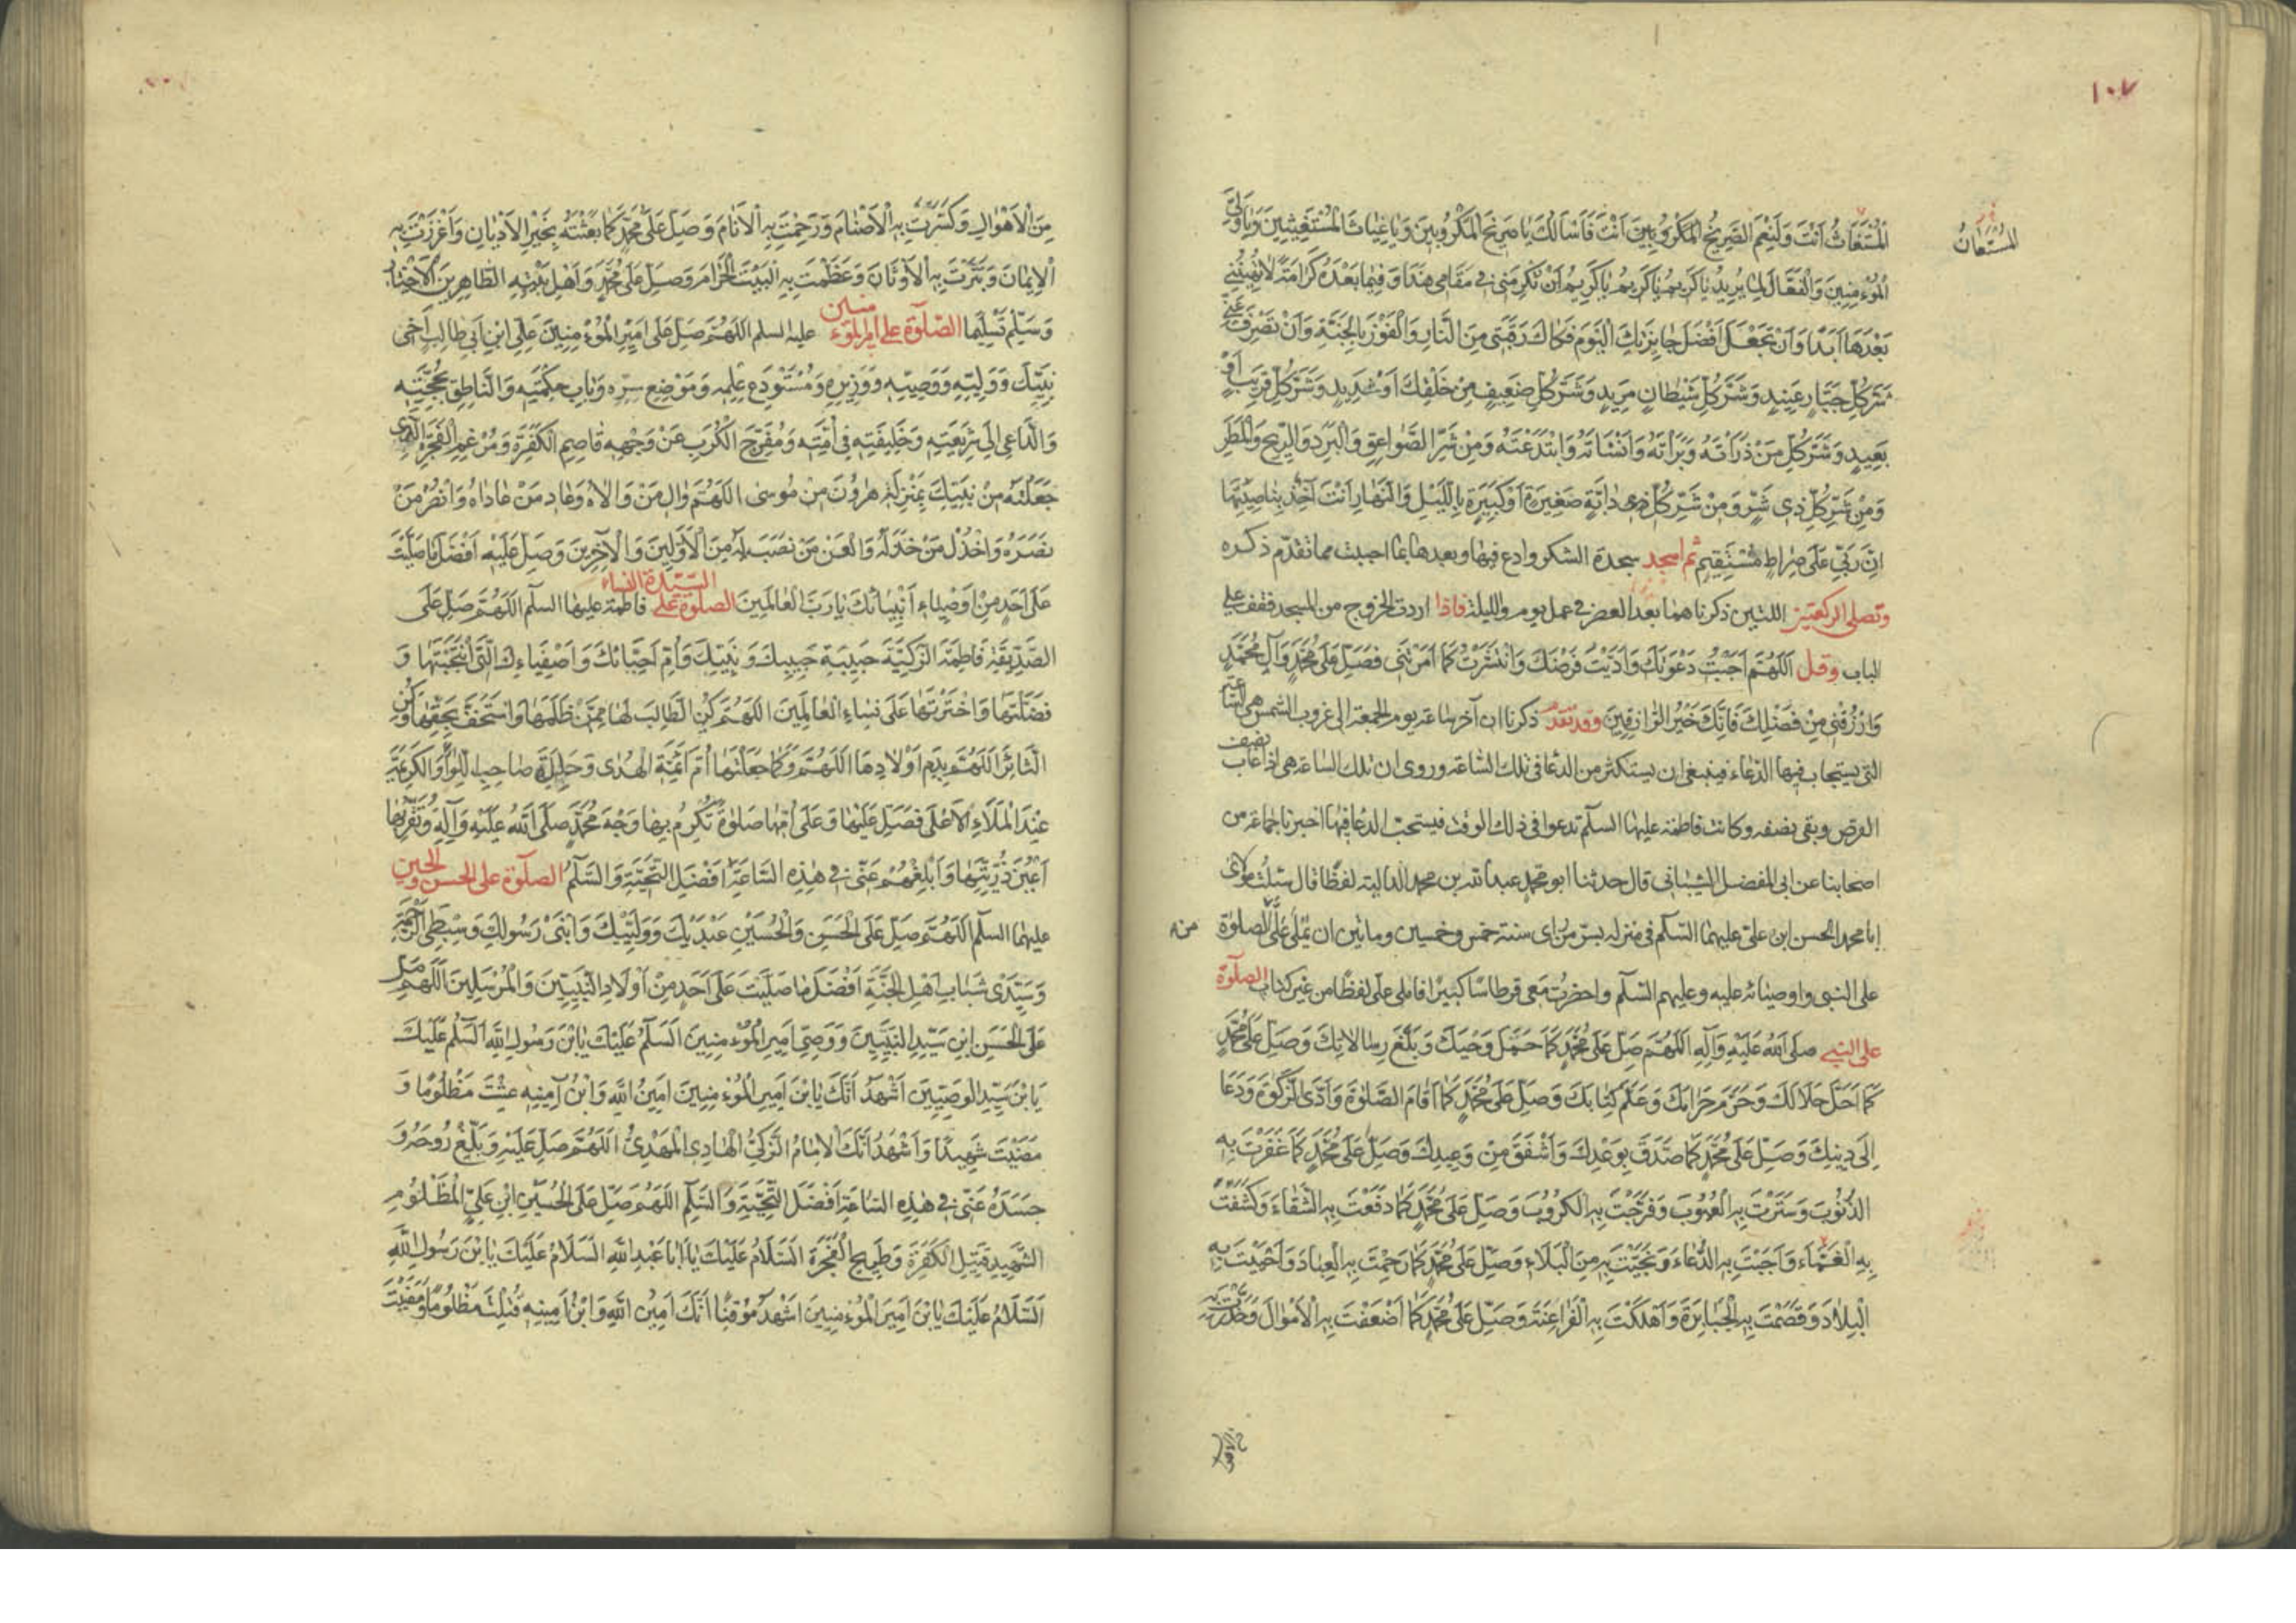 ١٠٧
المستعان
الْمُسْتَغَاثُ اَنْتَ وَلَنِعْمَ الصَّرِيخُ الْمَكْرُوبِينَ اَنْتَ فَاَسْاَلُكَ يَا صَرِيخَ الْمَكْرُوبِينَ وَيَا غِيَاثَ الْمُسْتَغِيثِينَ وَيَا وَلِيَّ
الْمُؤْمِنِينَ وَالْفَعَّالَ لِمَا يُرِيدُ يَا كَرِيمُ يَا كَرِيمُ يَا كَرِيمُ اَنْ تُكْرِمَنِي فِي مَقَامِي هَذَا وَفِيمَا بَعْدَهُ كَرَامَةً لَا تُهِينُنِي
بَعْدَهَا اَبَدًا وَاَنْ تَجْعَلَ اَفْضَلَ جَائِزَتِكَ الْيَوْمَ فَكَاكَ رَقَبَتِي مِنَ النَّارِ وَالْفَوْزَ بِالْجَنَّةِ وَاَنْ تَصْرِفَ عَنِّي
شَرَّ كُلِّ جَبَّارٍ عَنِيدٍ وَشَرَّ كُلِّ شَيْطَانٍ مَرِيدٍ وَشَرَّ كُلِّ ضَعِيفٍ مِنْ خَلْقِكَ اَوْ شَدِيدٍ وَشَرَّ كُلِّ قَرِيبٍ اَوْ
بَعِيدٍ وَشَرَّ كُلِّ مَنْ ذَرَاْتَهُ وَبَرَاْتَهُ وَاَنْشَاْتَهُ وَابْتَدَعْتَهُ وَمِنْ شَرِّ الصَّوَاعِقِ وَالْبَرَدِ وَالرِّيحِ وَالْمَطَرِ
وَمِنْ شَرِّ كُلِّ ذِي شَرٍّ وَمِنْ شَرِّ كُلِّ ذِي دَابَّةٍ صَغِيرَةٍ اَوْ كَبِيرَةٍ بِاللَّيْلِ وَالنَّهَارِ اَنْتَ آخِذٌ بِنَاصِيَتِهَا
اِنَّ رَبِّي عَلَى صِرَاطٍ مُسْتَقِيمٍ ثم اسجد سجدة الشكر وادع فيها وبعدها بما احببت مما تقدّم ذكره
وتصلى الركعتين اللتين ذكرناهما بعد العصر في عمل يوم والليلة فاذا اردت الخروج من المسجد فقف على
الباب وقل اَللَّهُمَّ اَجَبْتُ دَعْوَتَكَ وَاَدَّيْتُ فَرْضَكَ وَانْتَشَرْتُ كَمَا اَمَرْتَنِي فَصَلِّ عَلَى مُحَمَّدٍ وَآلِ مُحَمَّدٍ
وَارْزُقْنِي مِنْ فَضْلِكَ فَاِنَّكَ خَيْرُ الرَّازِقِينَ وقد تقدم ذكرنا ان آخر ساعة يوم الجمعة الى غروب الشمس هى الساعة
التى يستجاب فيها الدعاء فينبغى ان يستكثر من الدعا فى تلك الساعة وروى ان تلك الساعة هى اذا غاب نصف
القرص وبقى نصفه وكانت فاطمة عليها السلم تدعوا فى ذلك الوقت فيستحب الدعا فيها اخبرنا جماعة من
اصحابنا عن ابى المفضل الشيبانى قال حدثنا ابو محمد عبد الله بن محمد الدالية لفظا قال سئلت مولاى
ابا محمد الحسن ابن على عليهما السلم فى منزله بسر من راى سنة خمس وخمسين وماتين ان يملى علىّ الصلوة
على النبى واوصيائه عليه وعليهم السلم واحضرت معى قرطاسا كبيرا فاملى علىّ لفظا من غير كتاب الصلوة
على النبى صَلَّى اللهُ عَلَيْهِ وَآلِهِ اَللَّهُمَّ صَلِّ عَلَى مُحَمَّدٍ كَمَا حَمَلَ وَحْيَكَ وَبَلَّغَ رِسَالَاتِكَ وَصَلِّ عَلَى مُحَمَّدٍ
كَمَا اَحَلَّ حَلَالَكَ وَحَرَّمَ حَرَامَكَ وَعَلَّمَ كِتَابَكَ وَصَلِّ عَلَى مُحَمَّدٍ كَمَا اَقَامَ الصَّلٰوةَ وَاَدَّى الزَّكٰوةَ وَدَعَا
اِلَى دِينِكَ وَصَلِّ عَلَى مُحَمَّدٍ كَمَا صَدَّقَ بِوَعْدِكَ وَاَشْفَقَ مِنْ وَعِيدِكَ وَصَلِّ عَلَى مُحَمَّدٍ كَمَا غَفَرْتَ بِهِ
الذُّنُوبَ وَسَتَرْتَ بِهِ الْعُيُوبَ وَفَرَّجْتَ بِهِ الْكُرُوبَ وَصَلِّ عَلَى مُحَمَّدٍ كَمَا دَفَعْتَ بِهِ الشَّقَاءَ وَكَشَفْتَ
بِهِ الْغَمَّاءَ وَاَجَبْتَ بِهِ الدُّعَاءَ وَنَجَّيْتَ بِهِ مِنَ الْبَلَاءِ وَصَلِّ عَلَى مُحَمَّدٍ كَمَا رَحِمْتَ بِهِ الْعِبَادَ وَاَحْيَيْتَ بِهِ
الْبِلَادَ وَقَصَمْتَ بِهِ الْجَبَابِرَةَ وَاَهْلَكْتَ بِهِ الْفَرَاعِنَةَ وَصَلِّ عَلَى مُحَمَّدٍ كَمَا اَضْعَفْتَ بِهِ الْاَمْوَالَ وَحَذَّرْتَ بِهِ
مِنَ الْاَهْوَالِ وَكَسَّرْتَ بِهِ الْاَصْنَامَ وَرَحِمْتَ بِهِ الْاَنَامَ وَصَلِّ عَلَى مُحَمَّدٍ كَمَا بَعَثْتَهُ بِخَيْرِ الْاَدْيَانِ وَاَعْزَزْتَ بِهِ
الْاِيمَانَ وَتَبَّرْتَ بِهِ الْاَوْثَانَ وَعَظَّمْتَ بِهِ الْبَيْتَ الْحَرَامَ وَصَلِّ عَلَى مُحَمَّدٍ وَاَهْلِ بَيْتِهِ الطَّاهِرِينَ الْاَخْيَارِ
وَسَلِّمْ تَسْلِيمًا الصّلوة على امير المؤمنين عليه السلم اَللَّهُمَّ صَلِّ عَلَى اَمِيرِ الْمُؤْمِنِينَ عَلِيِّ ابْنِ اَبِي طَالِبٍ اَخِي
نَبِيِّكَ وَوَلِيِّهِ وَوَصِيِّهِ وَوَزِيرِهِ وَمُسْتَوْدَعِ عِلْمِهِ وَمَوْضِعِ سِرِّهِ وَبَابِ حِكْمَتِهِ وَالنَّاطِقِ بِحُجَّتِهِ
وَالدَّاعِي اِلَى شَرِيعَتِهِ وَخَلِيفَتِهِ فِي اُمَّتِهِ وَمُفَرِّجِ الْكُرَبِ عَنْ وَجْهِهِ قَاصِمِ الْكَفَرَةِ وَمُرْغِمِ الْفَجَرَةِ الَّذِي
جَعَلْتَهُ مِنْ نَبِيِّكَ بِمَنْزِلَةِ هٰرُونَ مِنْ مُوسَى اَللَّهُمَّ وَالِ مَنْ وَالَاهُ وَعَادِ مَنْ عَادَاهُ وَانْصُرْ مَنْ
نَصَرَهُ وَاخْذُلْ مَنْ خَذَلَهُ وَالْعَنْ مَنْ نَصَبَ لَهُ مِنَ الْاَوَّلِينَ وَالْآخِرِينَ وَصَلِّ عَلَيْهِ اَفْضَلَ مَا صَلَّيْتَ
عَلَى اَحَدٍ مِنْ اَوْصِيَاءِ اَنْبِيَائِكَ يَا رَبَّ الْعَالَمِينَ الصلوة على السيّدة النساء فاطمة عليها السلم اَللَّهُمَّ صَلِّ عَلَى
الصِّدِّيقَةِ فَاطِمَةَ الزَّكِيَّةِ حَبِيبَةِ حَبِيبِكَ وَنَبِيِّكَ وَاُمِّ اَحِبَّائِكَ وَاَصْفِيَاءِكَ الَّتِي انْتَجَبْتَهَا وَ
فَضَّلْتَهَا وَاخْتَرْتَهَا عَلَى نِسَاءِ الْعَالَمِينَ اَللَّهُمَّ كُنِ الطَّالِبَ لَهَا مِمَّنْ ظَلَمَهَا وَاسْتَخَفَّ بِحَقِّهَا وَكُنِ
الثَّائِرَ اَللَّهُمَّ بِدَمِ اَوْلَادِهَا اَللَّهُمَّ وَكَمَا جَعَلْتَهَا اُمَّ اَئِمَّةِ الْهُدَى وَحَلِيلَةَ صَاحِبِ اللِّوَاءِ وَالْكَرِيمَةَ
عِنْدَ الْمَلَاءِ الْاَعْلَى فَصَلِّ عَلَيْهَا وَعَلَى اُمِّهَا صَلٰوةً تُكْرِمُ بِهَا وَجْهَ مُحَمَّدٍ صَلَّى اللهُ عَلَيْهِ وَآلِهِ وَتُقِرُّ بِهَا
اَعْيُنَ ذُرِّيَّتِهَا وَاَبْلِغْهُمْ عَنِّي فِي هٰذِهِ السَّاعَةِ اَفْضَلَ التَّحِيَّةِ وَالسَّلٰمِ الصلوة على الحسن والحسين
عليهما السلم اَللَّهُمَّ صَلِّ عَلَى الْحَسَنِ وَالْحُسَيْنِ عَبْدَيْكَ وَوَلِيَّيْكَ وَابْنَيْ رَسُولِكَ وَسِبْطَيِ الرَّحْمَةِ
وَسَيِّدَيْ شَبَابِ اَهْلِ الْجَنَّةِ اَفْضَلَ مَا صَلَّيْتَ عَلَى اَحَدٍ مِنْ اَوْلَادِ النَّبِيِّينَ وَالْمُرْسَلِينَ اَللَّهُمَّ صَلِّ
عَلَى الْحَسَنِ ابْنِ سَيِّدِ النَّبِيِّينَ وَوَصِيِّ اَمِيرِ الْمُؤْمِنِينَ اَلسَّلٰمُ عَلَيْكَ يَا ابْنَ رَسُولِ اللّٰهِ اَلسَّلٰمُ عَلَيْكَ
يَا ابْنَ سَيِّدِ الْوَصِيِّينَ اَشْهَدُ اَنَّكَ يَا ابْنَ اَمِيرِ الْمُؤْمِنِينَ اَمِينُ اللّٰهِ وَابْنُ اَمِينِهِ عِشْتَ مَظْلُومًا وَ
مَضَيْتَ شَهِيدًا وَاَشْهَدُ اَنَّكَ الْاِمَامُ الزَّكِيُّ الْهَادِي الْمَهْدِيُّ اَللَّهُمَّ صَلِّ عَلَيْهِ وَبَلِّغْ رُوحَهُ وَ
جَسَدَهُ عَنِّي فِي هٰذِهِ السَّاعَةِ اَفْضَلَ التَّحِيَّةِ وَالسَّلٰمِ اَللَّهُمَّ صَلِّ عَلَى الْحُسَيْنِ ابْنِ عَلِيٍّ الْمَظْلُومِ
الشَّهِيدِ قَتِيلِ الْكَفَرَةِ وَطَرِيحِ الْفَجَرَةِ اَلسَّلَامُ عَلَيْكَ يَا اَبَا عَبْدِ اللّٰهِ اَلسَّلَامُ عَلَيْكَ يَا ابْنَ رَسُولِ اللّٰهِ
اَلسَّلَامُ عَلَيْكَ يَا ابْنَ اَمِيرِ الْمُؤْمِنِينَ اَشْهَدُ مُوقِنًا اَنَّكَ اَمِينُ اللّٰهِ وَابْنُ اَمِينِهِ قُتِلْتَ مَظْلُومًا وَمَضَيْتَ